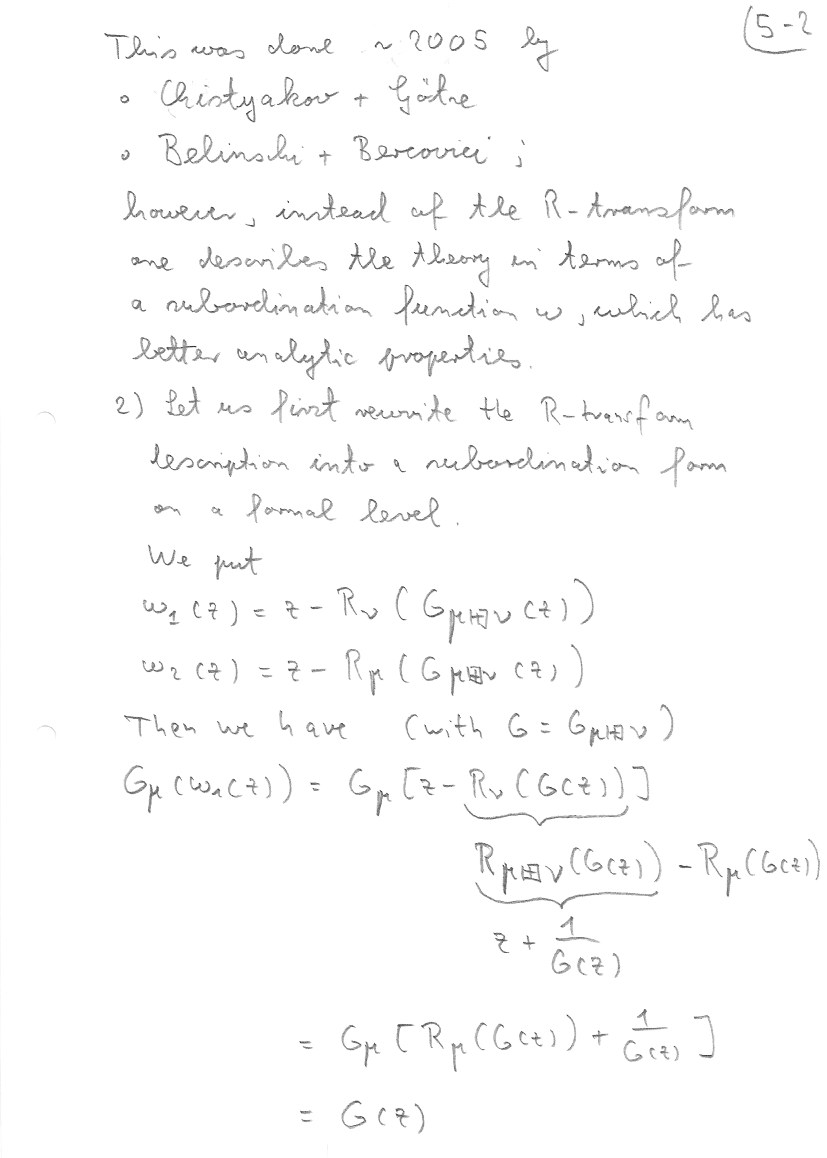 5-2
This was done ~ 2005 by
∘ Chistyakov + Götze
∘ Belinschi + Bercovici ;
however, instead of the R-transform
one describes the theory in terms of
a subordination function ω, which has
better analytic properties.
2) Let us first rewrite the R-transform
description into a subordination form
on a formal level.
We put
ω₁(z) = z - R_ν (G_{μ⊞ν}(z))
ω₂(z) = z - R_μ (G_{μ⊞ν}(z))
Then we have (with G = G_{μ⊞ν})
G_μ(ω₁(z)) = G_μ [z - R_ν(G(z))]
R_{μ⊞ν}(G(z)) - R_μ(G(z))
z + 1/G(z)
= G_μ [R_μ(G(z)) + 1/G(z)]
= G(z)